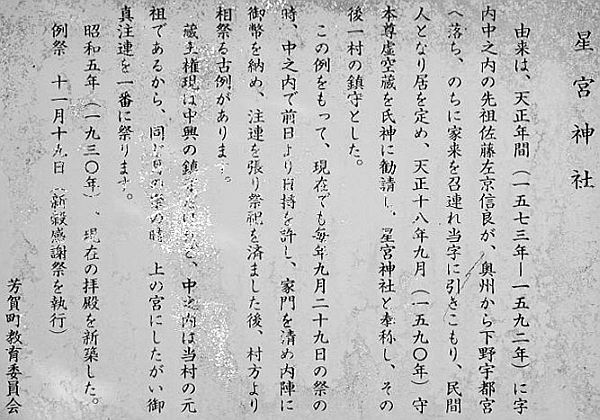 星宮神社
由来は、天正年間（一五七三年ー一五九二年）に字
内中之内の先祖佐藤左京信良が、奥州から下野宇都宮
へ落ち、のちに家来を召連れ当字に引きこもり、民間
人となり居を定め、天正十八年九月（一五九〇年）守
本尊虚空蔵を氏神に勧請し、星宮神社と奉称し、その
後一村の鎮守とした。
この例をもって、現在でも毎年九月二十九日の祭の
時、中之内で前日より日待を許し、家門を清め内陣に
御幣を納め、注連を張り祭祀を済ました後、村方より
相祭る古例があります。
蔵王権現は中興の鎮守 中之内は当村の元
祖であるから、同 の祭の時 上の宮にしたがい御
真注連を一番に祭ります。
昭和五年（一九三〇年）、現在の拝殿を新築した。
例祭 十一月十九日（新穀感謝祭を執行）
芳賀町教育委員会